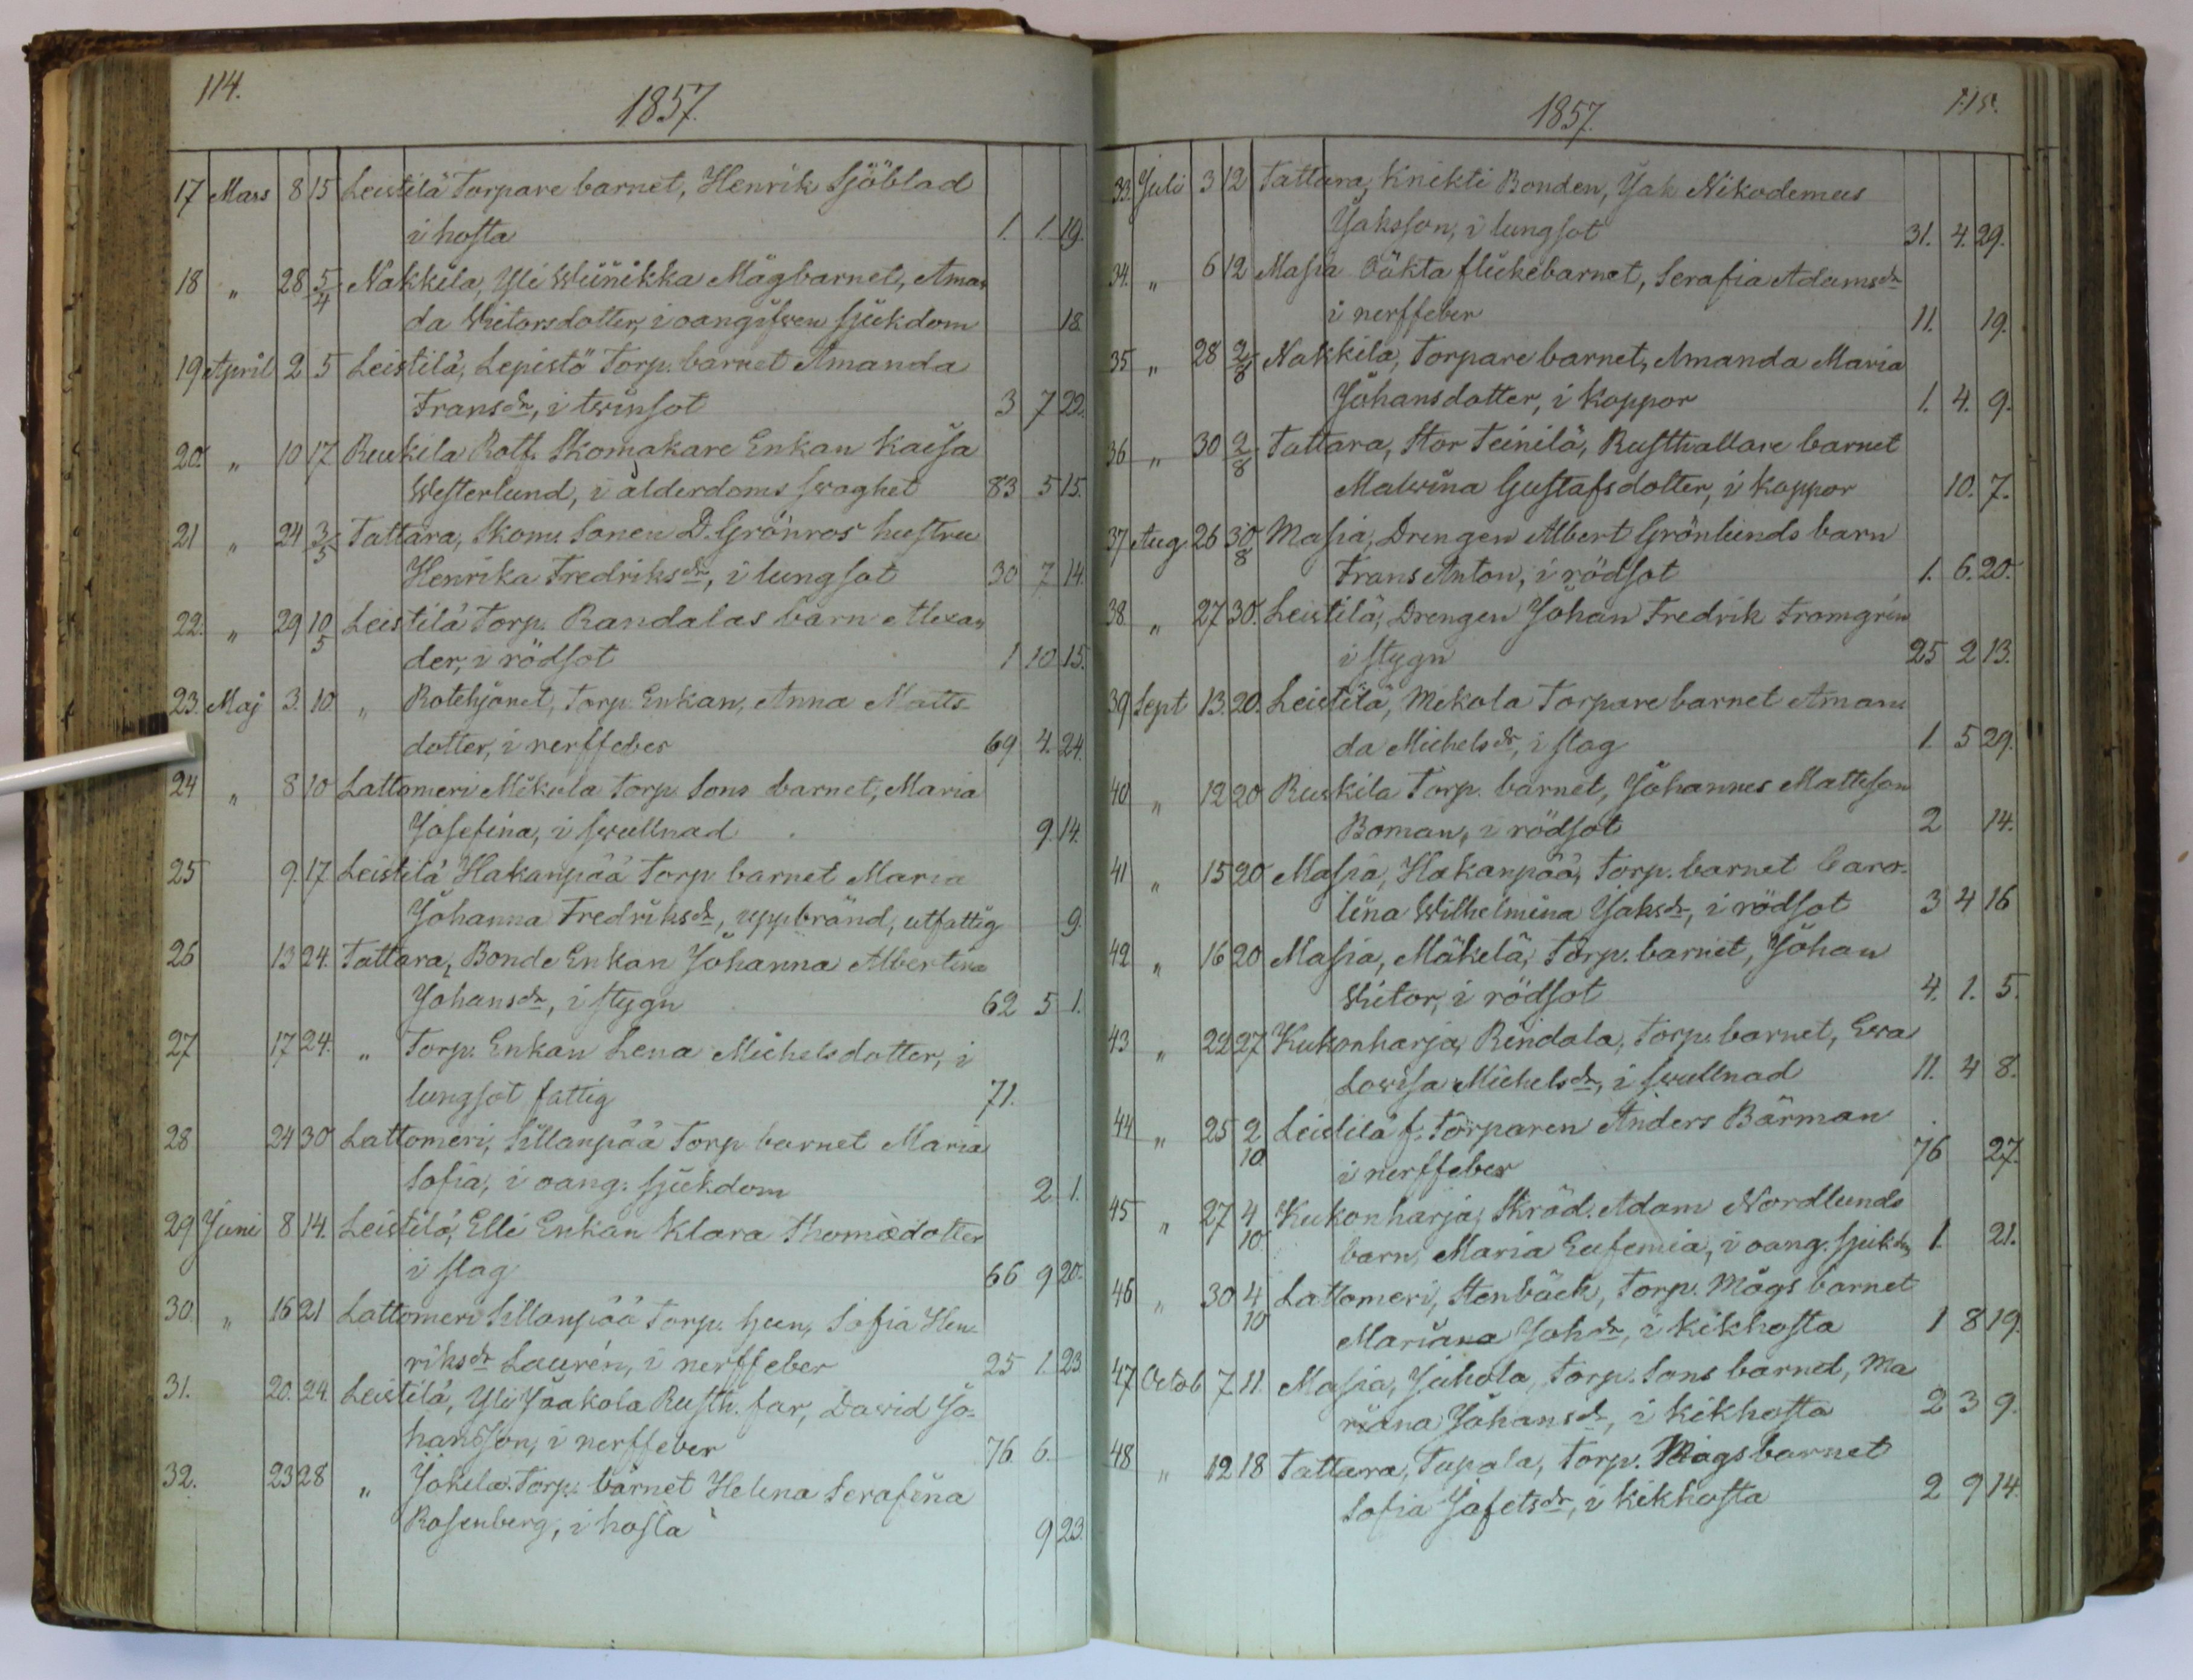 114.
1857.
17 Mars 8 15 Leistilä Torpare barnet, Henrik Sjöblad
i hosta 1. 1. 19.
18 " 28 5/4 Nakkila, Yli Wiinikka Mågbarnet, Aman
da Victorsdotter, i oangifwen sjukdom 18
19 April 2 5 Leistilä, Lepistö Torp. barnet Amanda
Fransdr, i twinsot 3 7 22.
20. " 10 17 Ruskila Rotf. Skomakare Enkan Kaisa
Westerlund, i ålderdoms swaghet 83 5 15.
21 " 24 3/5 Tattara, Skom. Sonen D. Grönros hustru
Henrika Fredriksdr, i lungsot 30 7 14.
22. " 29 10/5 Leistilä Torp. Randalas barn Alexan
der, i rödsot 1 10 15.
23. Maj 3. 10 " Rotehjonet, Torp. Enkan, Anna Matts-
dotter, i nerffeber 69 4. 24.
24 " 8 10 Lattomeri Mikola Torp. Sons barnet, Maria
Josefina, i swullnad 9. 14.
25 9. 17 Leistilä Hakanpää Torp barnet Maria
Johanna Fredriksdr, uppbränd, utfattig 9.
26 13 24. Tattara, Bonde Enkan Johanna Albertina
Johansdr, i stygn 62 5 1.
27 17 24. " Torp. Enkan Lena Michelsdotter, i
lungsot fattig 71.
28 24 30 Lattomeri, Sillanpää Torp barnet Maria
Sofia, i oang. sjukdom 2 1.
29 Juni 8 14. Leistilä, Elli Enkan Klara Thomædotter
i slag 66 9 20.
30. " 16 21 Lattomeri Sillanpää Torp. hun, Sofia Hen-
riksdr Laurén, i nerffeber 25 1. 23
31. 20. 24. Leistilä, Yli Jaakola Rusth. far, David Jo-
hansson, i nerffeber 76 6.
32. 23 28 " Jokela Torp. barnet Helena Serafina
Rosenberg, i hosta 9 23.
1857. 115.
33. Juli 3 12 Tattara, Knikti Bonden, Jak Nikodemus
Jaksson, i lungsot 31. 4. 29.
34. " 6 12 Masia Oükta flickebarnet, Serafia Adamsdr
i nerffeber 11. 19.
35 " 28 2/8 Nakkila, Torpare barnet, Amanda Maria
Johansdotter, i koppor 1. 4. 9.
36 " 30 2/8 Tattara, Stor Teinilä, Rusthallare barnet
Malwina Gustafsdotter, i koppor 10. 7.
37 Aug. 26 30/8 Masia, Drengen Albert Grönlunds barn
Frans Anton, i rödsot 1. 6. 20.
38. " 27 30. Leistilä, Drengen Johan Fredrik Fromgrin
i stygn 25 2 13.
39 Sept 13. 20. Leistilä, Mikola Torpare barnet Aman
da Michelsdr, i slag 1. 5 29.
40 " 12 20 Ruskila Torp. barnet, Johannes Mattsson
Boman, i rödsot 2 14.
41 " 15 20 Masia, Hakanpää, Torp. barnet Caro-
lina Wilhelmina Jaksdr, i rödsot 3 4 16
42 " 16 20 Masia, Mäkelä, Torp. barnet, Johan
Victor, i rödsot 4. 1. 5.
43 " 22 27 Kukonharja, Rindala, Torp. barnet, Ewa
Lowisa Michelsdr, i swullnad 11. 4 8.
44 " 25 2/10 Leistilä f. Torparen Anders Bärman
i nerffeber 76 27.
45 " 27 4/10 Kukonharja, Skräd. Adam Nordlunds
barn, Maria Eufemia, i oang. sjukdm 1. 21.
46 " 30 4/10 Lattomeri, Stenbäck, Torp. Mågs barnet
Mariana Johdr, i kikhosta 1 8 19.
47 Octob 7 11. Masia, Juhola, Torp. Sons barnet, Ma
riana Johansdr, i kikhosta 2 3 9.
48 " 12 18 Tattara, Tupala, Torp. Mågsbarnet
Sofia Jafetsdr, i kikhosta 2 9 14.